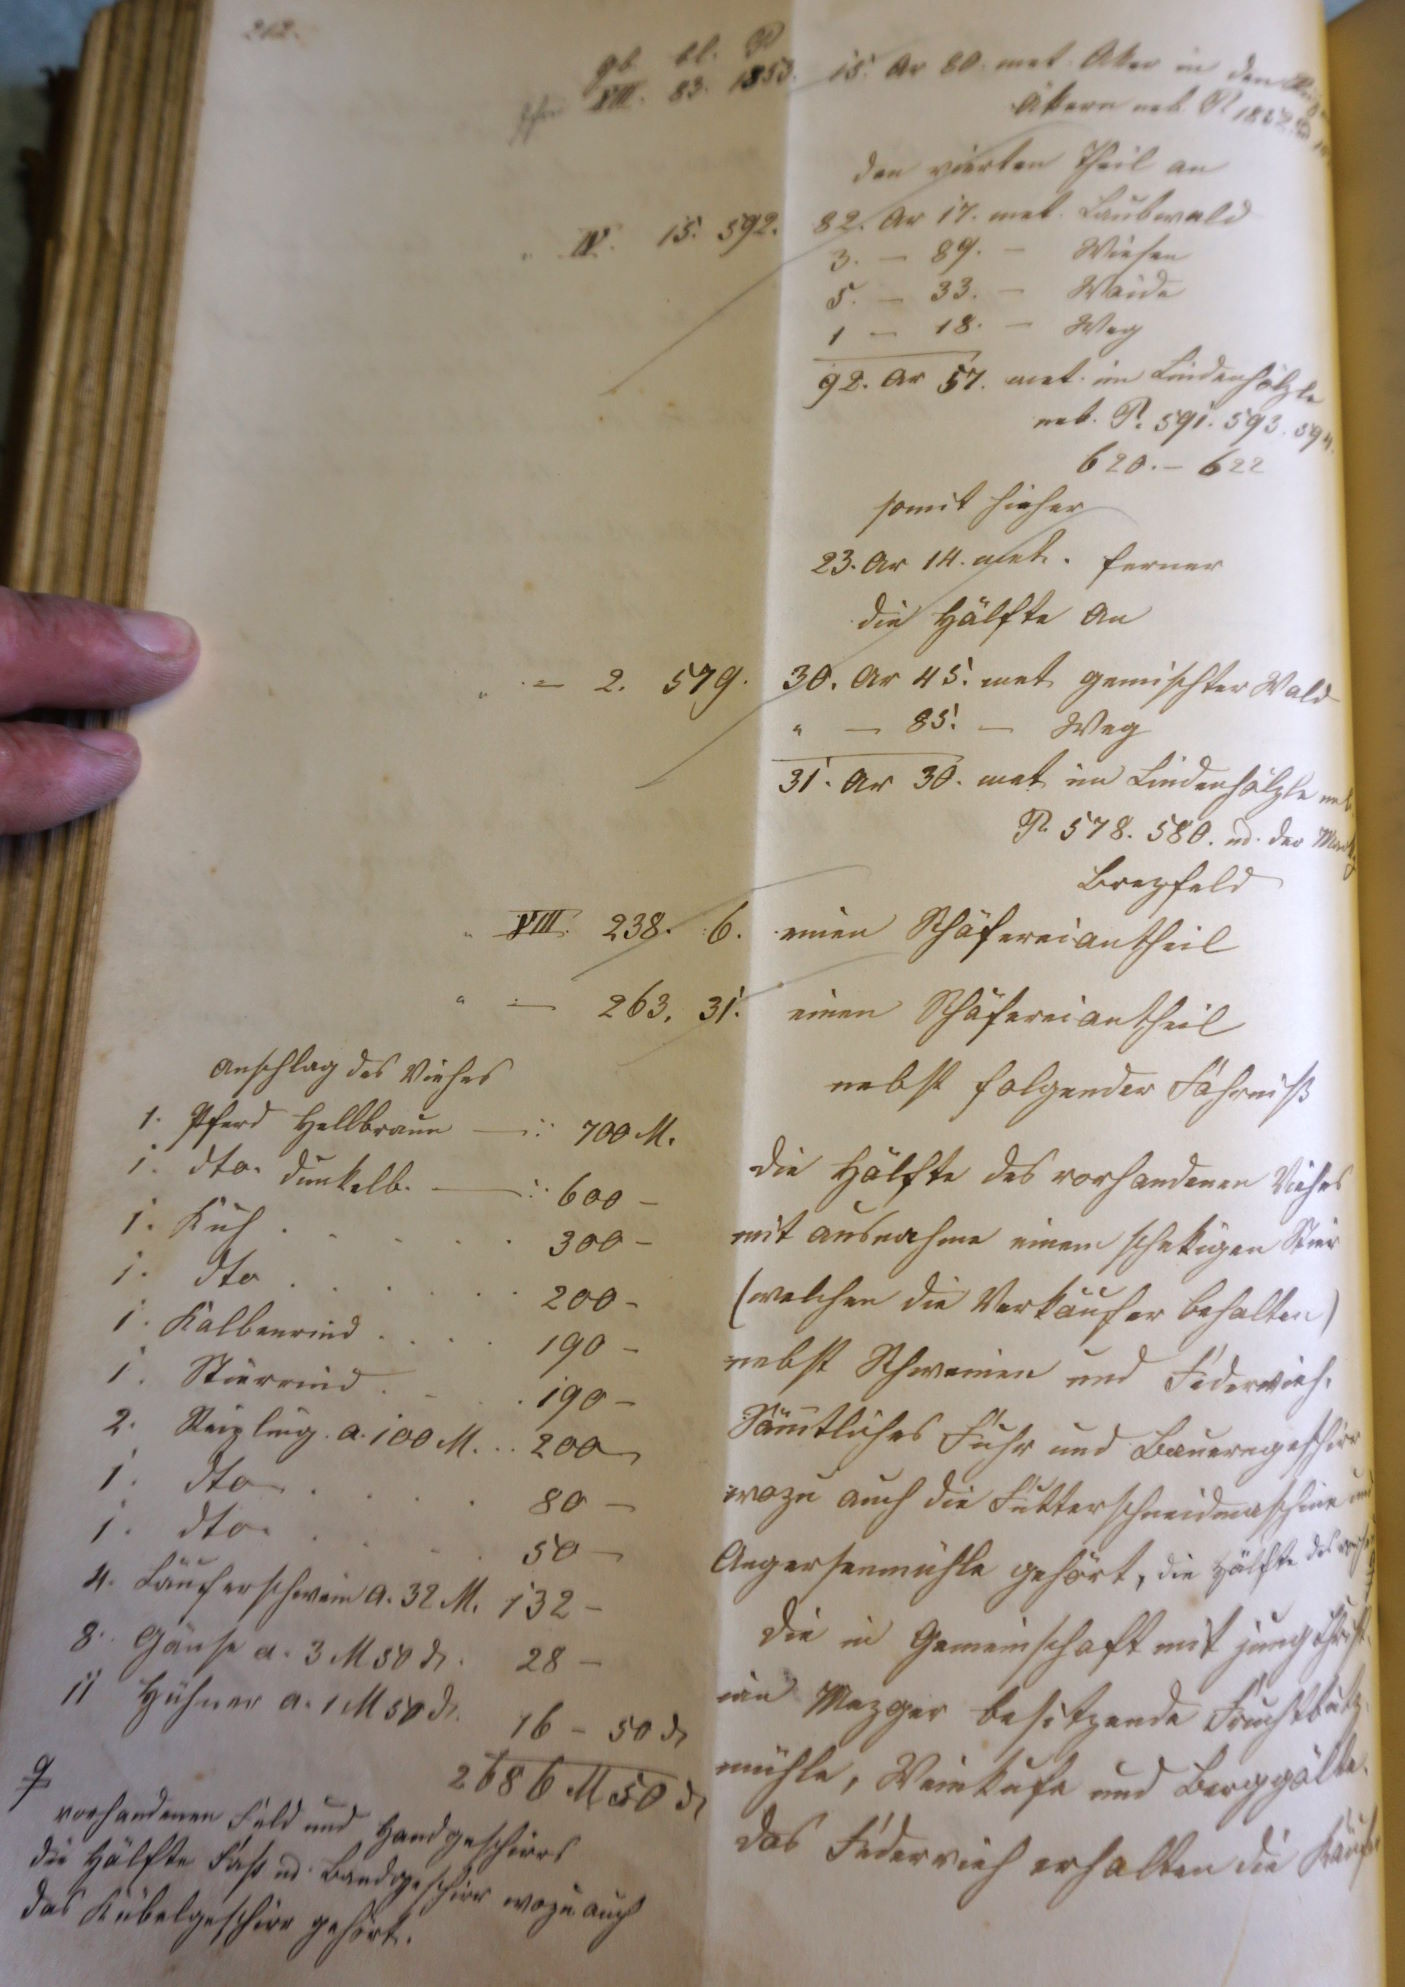 212.
gb. bl. P
VIII. 83. 1853. 15. Ar 80. met. Aker in den
Äkern neb. P. 1852
den vierten Theil an
" IV. 15. 592. 82. Ar 17. met. Laubwald
3. — 89. — Wiesen
5. — 33. — Waide
1 — 18. — Weg
92. Ar 57. met. im Lindenhölzle
neb. P. 591. 593. 594.
620. – 622
somit hieher
23. Ar 14. met. ferner
die Hälfte an
" — 2. 579. 30. Ar 45. met gemischter Wald
" — 85. — Weg
31. Ar 30. met im Lindenhölzle neb.
P. 578. 580. ud. der Markg
Brezfeld
" VIII. 238. 6. einen Schäfereiantheil
" — 263. 31. einen Schäfereiantheil
nebst folgender Fährniß
die Hälfte des vorhandenen Viehes
mit ausnahme einem schekigen Stier
(welchen die Verkäufer behalten)
nebst Schweinen und Federvieh.
Sämtliches Fuhr und Bauerngeschirr
wozu auch die Futterschneidmaschine und
Angersenmühle gehört, die Hälfte des
die in Gemeinschaft mit jung Christ-
ian Mezger besitzende Fruchtputz-
mühle, Weinkufe und Berggölte.
das Federvieh erhalten die Käufer
Anschlag des Viehes
1. Pferd Hellbraun — : 700 M.
1. dto. dunkelb. — : 600 –
1. Kuh . . . . . 300 –
1. dto . . . . . . 200 –
1. Kalbenrind . . . . 190 –
1. Stierrind . . . 190 –
2. Stizling. a. 100 M. . . 200 –
1. dto . . . . 80 –
1. dto. . . . . 50 –
4. Läuferschwein a. 32 M. 132 –
8. Gänse a. 3 M 50 d. 28 –
11 Hühner a. 1 M 50 d. 16 – 50 d
2686 M 50 d
vorhandenen Feld und Handgeschirrs
die Hälfte Faß ud. Bandgeschirr wozu auch
das Kübelgeschirr gehört.